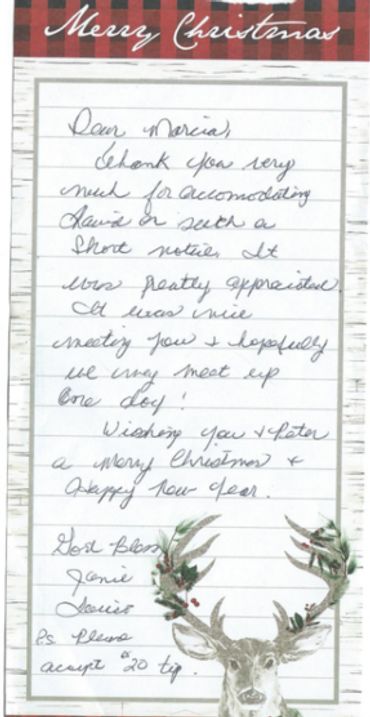 Merry Christmas
Dear Marcia,
Thank you very
much for accomodating
on such a
Short notice. It
was greatly appreciated.
It was nice
meeting you & hopefully
we may meet up
one day!
Wishing you & Peter
a Merry Christmas &
Happy New Year.
God Bless
Janie
P.S. Please
accept $20 tip.